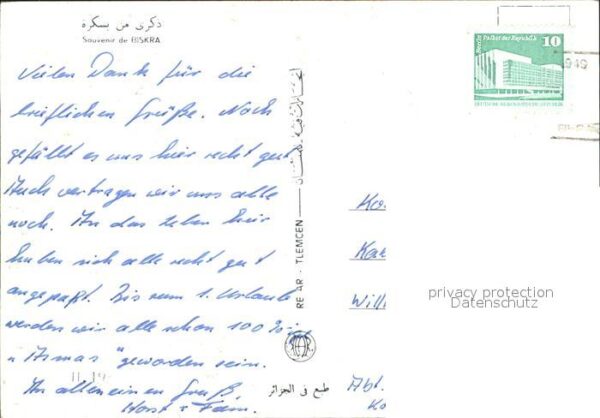 ذكرى من بسكرة
Souvenir de BISKRA
Vielen Dank für die
brieflichen Grüße. Noch
gefällt es uns hier recht gut
Auch vertragen wir uns alle
noch. An das Leben hier
haben sich alle recht gut
angepaßt. Bis zum 1. Urlaub
werden wir alle schon 100 %
geworden sein.
An allen einen Gruß,
Horst + Fam.
TLEMCEN
طبع في الجزائر
Berlin Palast der Republik
10
DEUTSCHE DEMOKRATISCHE REPUBLIK
privacy protection
Datenschutz
Abt.